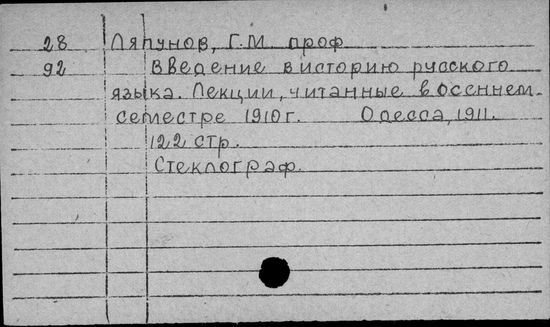 28 Ляпунов, Г.М. проф
92 Введение в историю русского
языка. Лекции, читанные в осеннем
семестре 1910 г. Одесса, 1911.
122 стр.
Стеклограф.